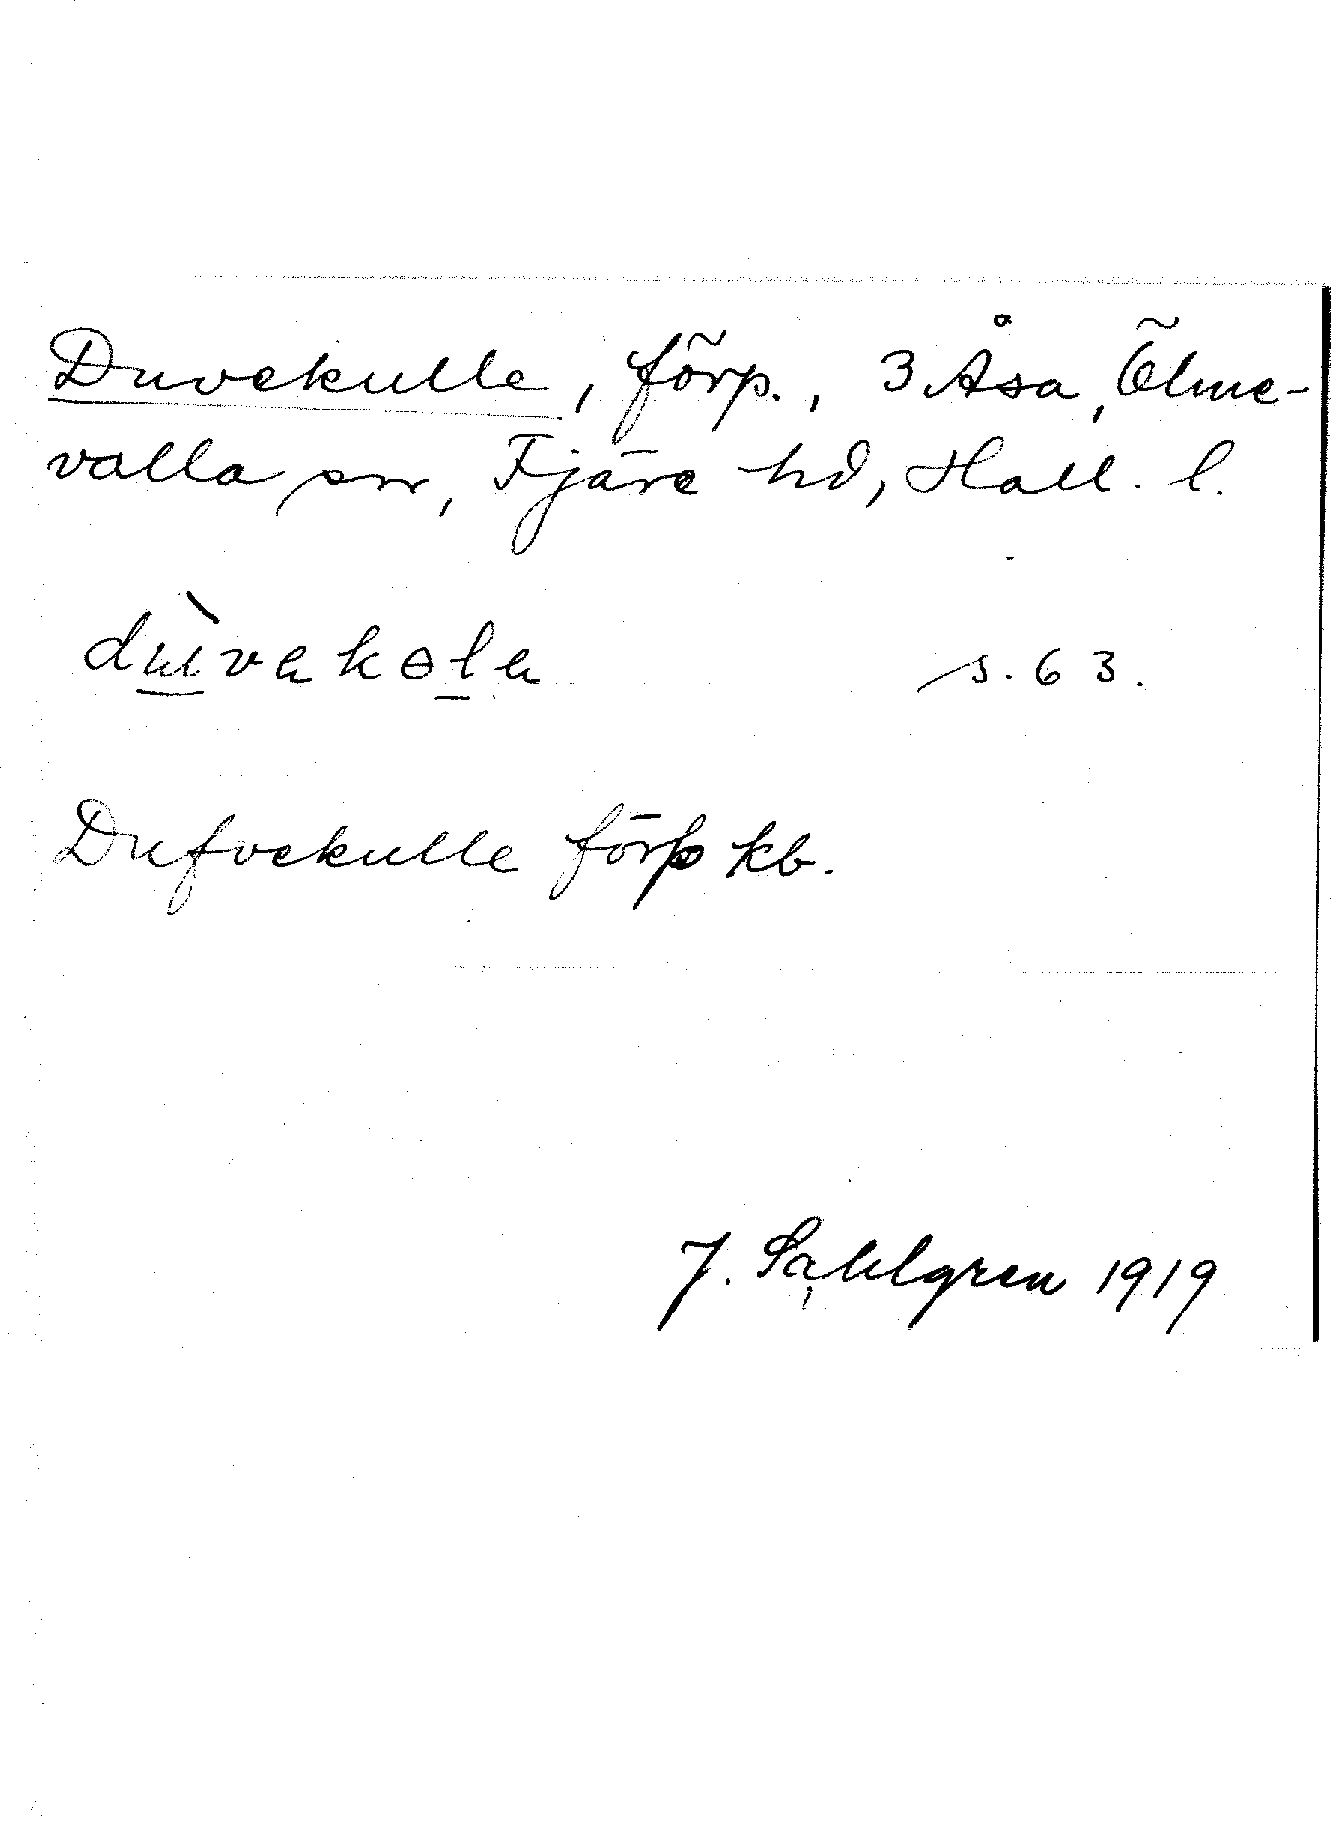 Duvekulle, förp., 3 Åsa, Ölme-
valla sn, Fjäre hd, Hall. l.
dùvakɵla s. 63.
Dufvekulle förp kb.
J. Sahlgren 1919